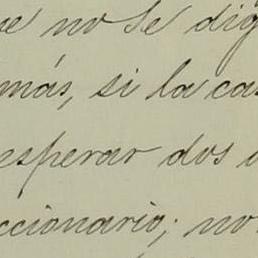 ue no se dig
más, si la cas
esperar dos
ccionario; no